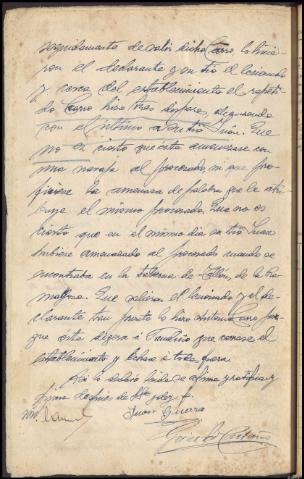 seguidamente de salir dicho Caro lo hicie-
ron el declarante y su tio el lesionado
y cerca del establecimiento el repeti-
do Caro hizo tres disparos, alcanzando
con el último a su tio Juan. Que
no es cierto que este amenazase con
una navaja al procesado, ni que pro-
firiese la amenaza de palabra que le atri-
buye el mismo procesado. Que no es
cierto que en el mismo dia su tio Juan
hubiese amenazado al procesado cuando se
encontraba en la taberna de de la
Que salieron el lesionado y el de-
clarante tan pronto lo hizo Antonio Caro por-
que este dijera a que cerrase el
establecimiento y echase a todos fuera.
Asi lo dice leido se afirma y ratifica y
firma despues de Sª Sª doy fe.
Juan Guerra